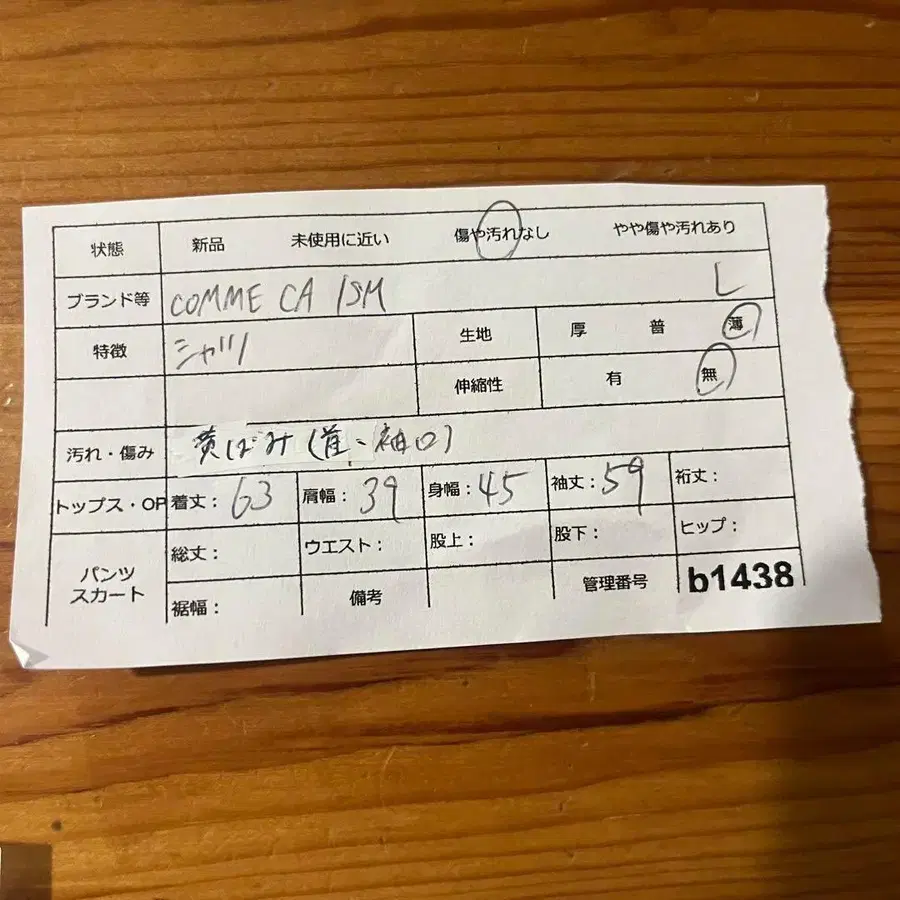 状態 新品 未使用に近い 傷や汚れなし やや傷や汚れあり
ブランド等 COMME CA ISM L
特徴 シャツ 生地 厚 普 薄
伸縮性 有 無
汚れ・傷み 黄ばみ(首、袖口)
トップス・OP 着丈:63 肩幅:39 身幅:45 袖丈:59 裄丈:
パンツ スカート 総丈: ウエスト: 股上: 股下: ヒップ:
裾幅: 備考 管理番号 b1438